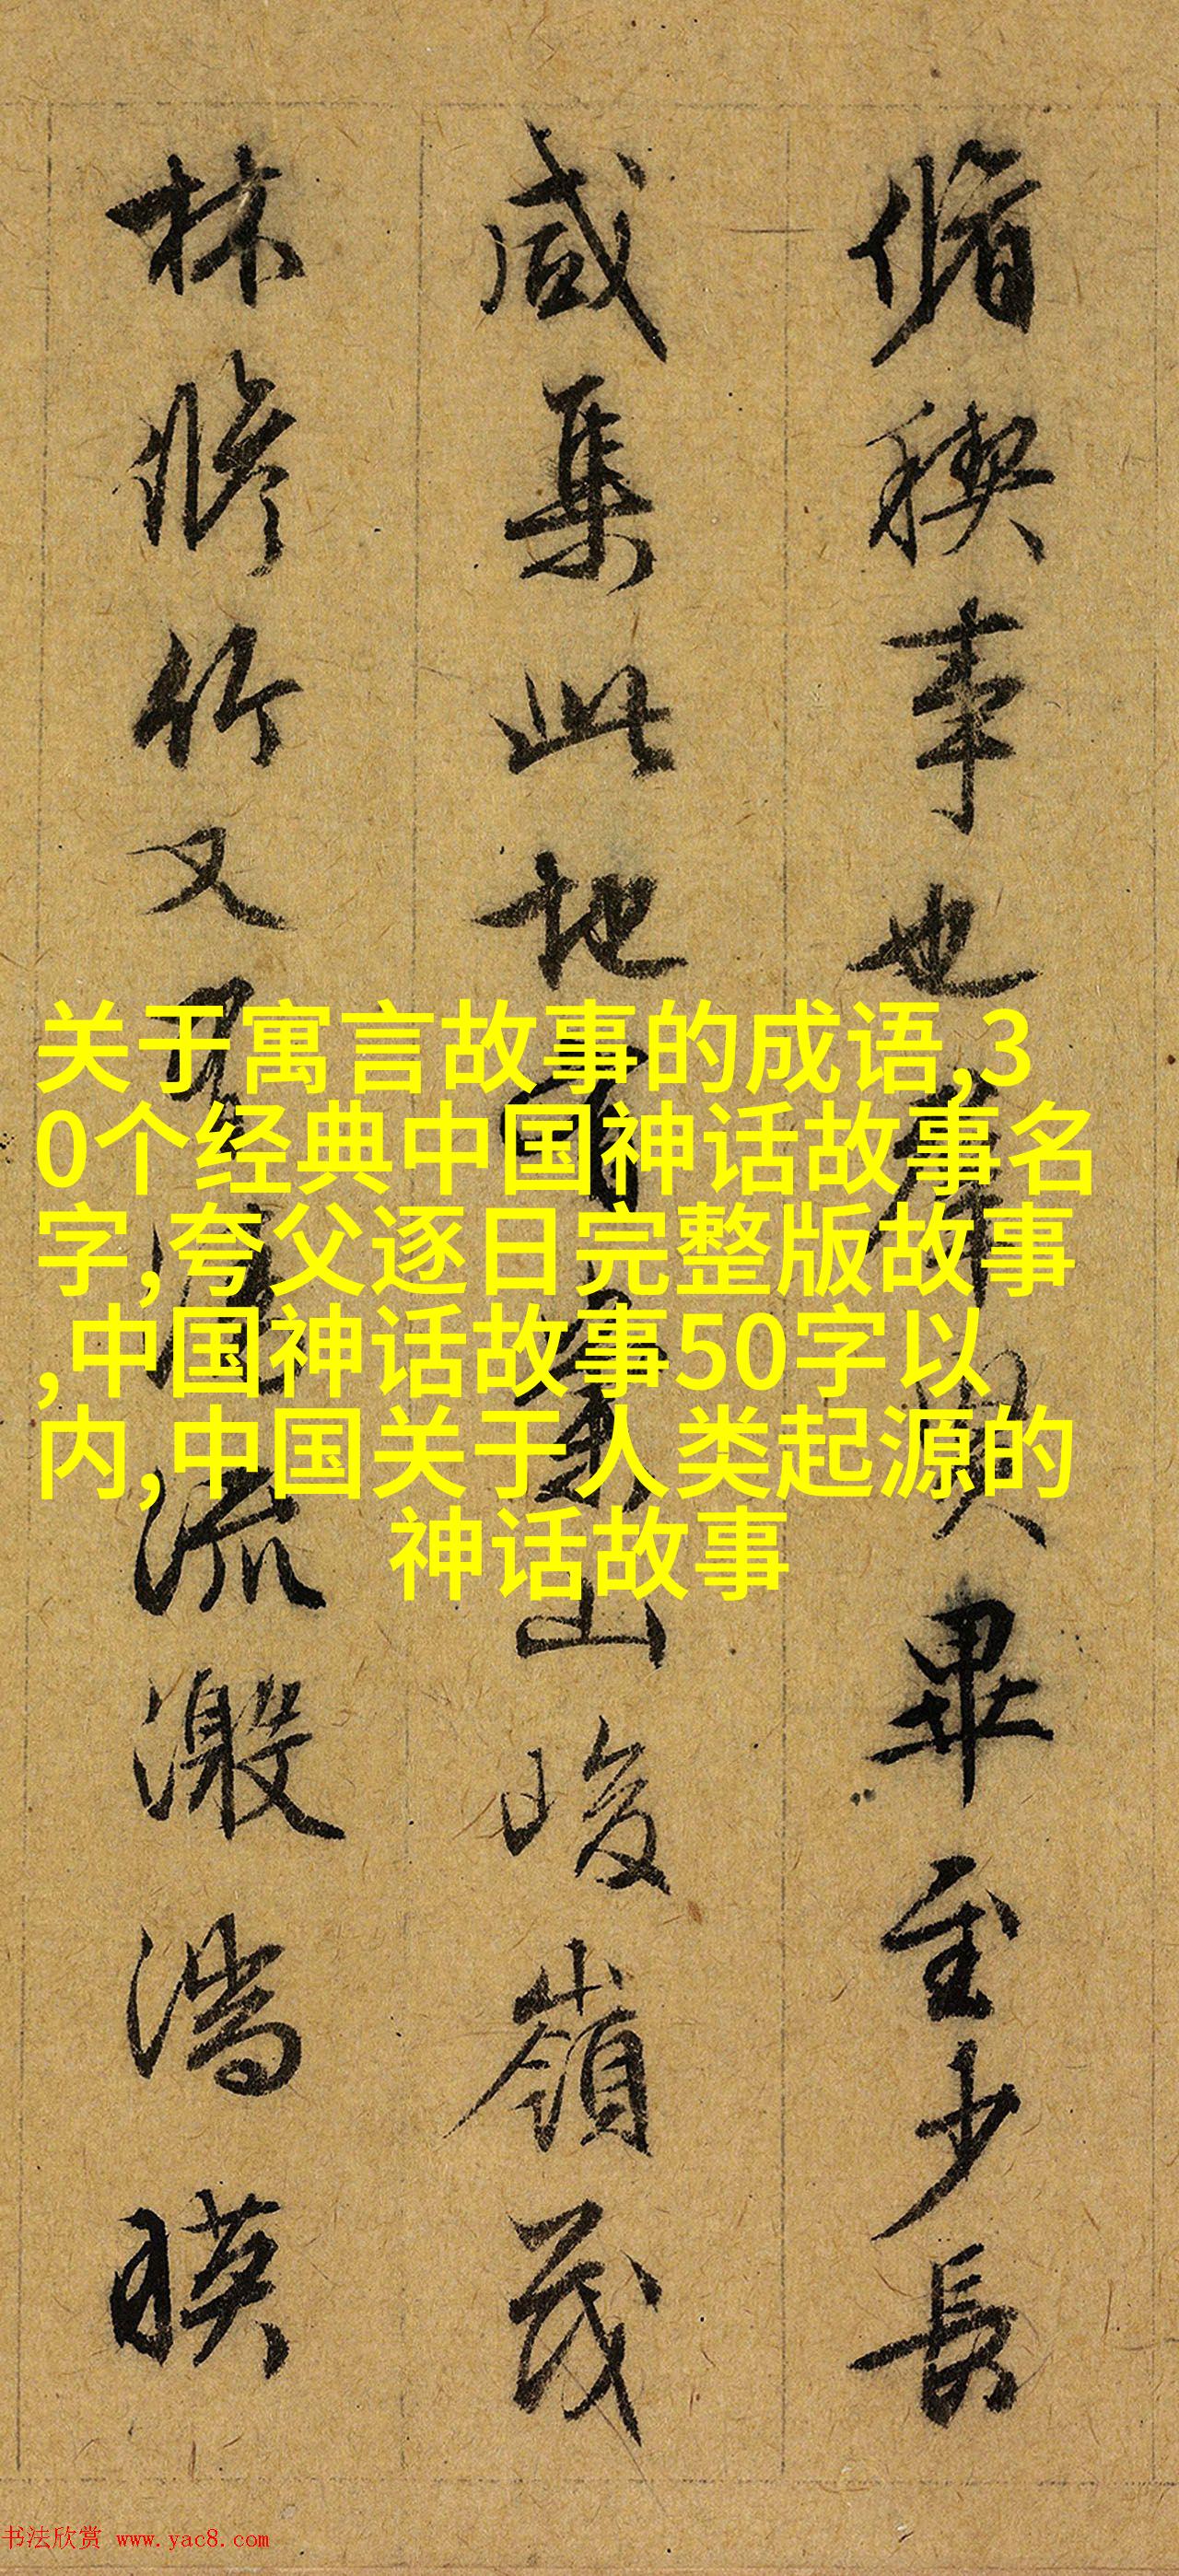 脩稧事也羣賢畢至少長
咸集此地有崇山峻嶺茂
林修竹又有清流激湍暎
关于寓言故事的成语,3
0个经典中国神话故事名
字,夸父逐日完整版故事
,中国神话故事50字以
内,中国关于人类起源的
神话故事
书法欣赏 www.yac8.com